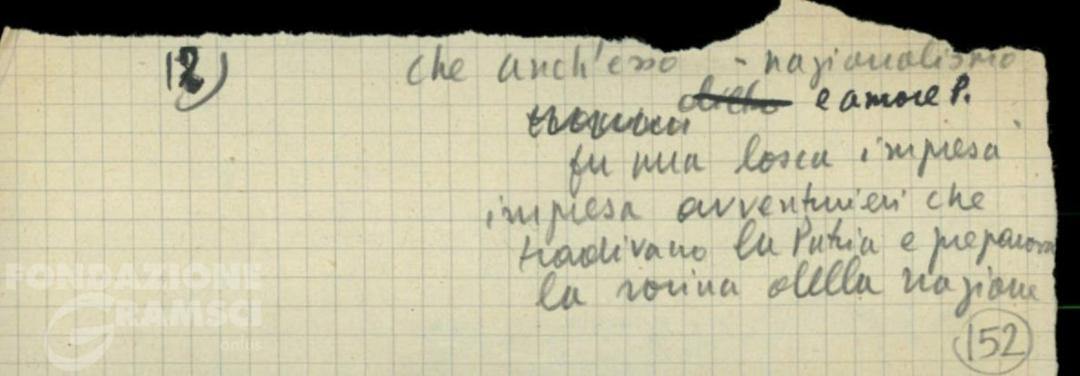 12) che anch'esso - nazionalismo
e amore P.
fu una losca impresa
impresa avventurieri che
tradivano la Patria e preparavano
la rovina della nazione
152
FONDAZIONE
GRAMSCI
onlus